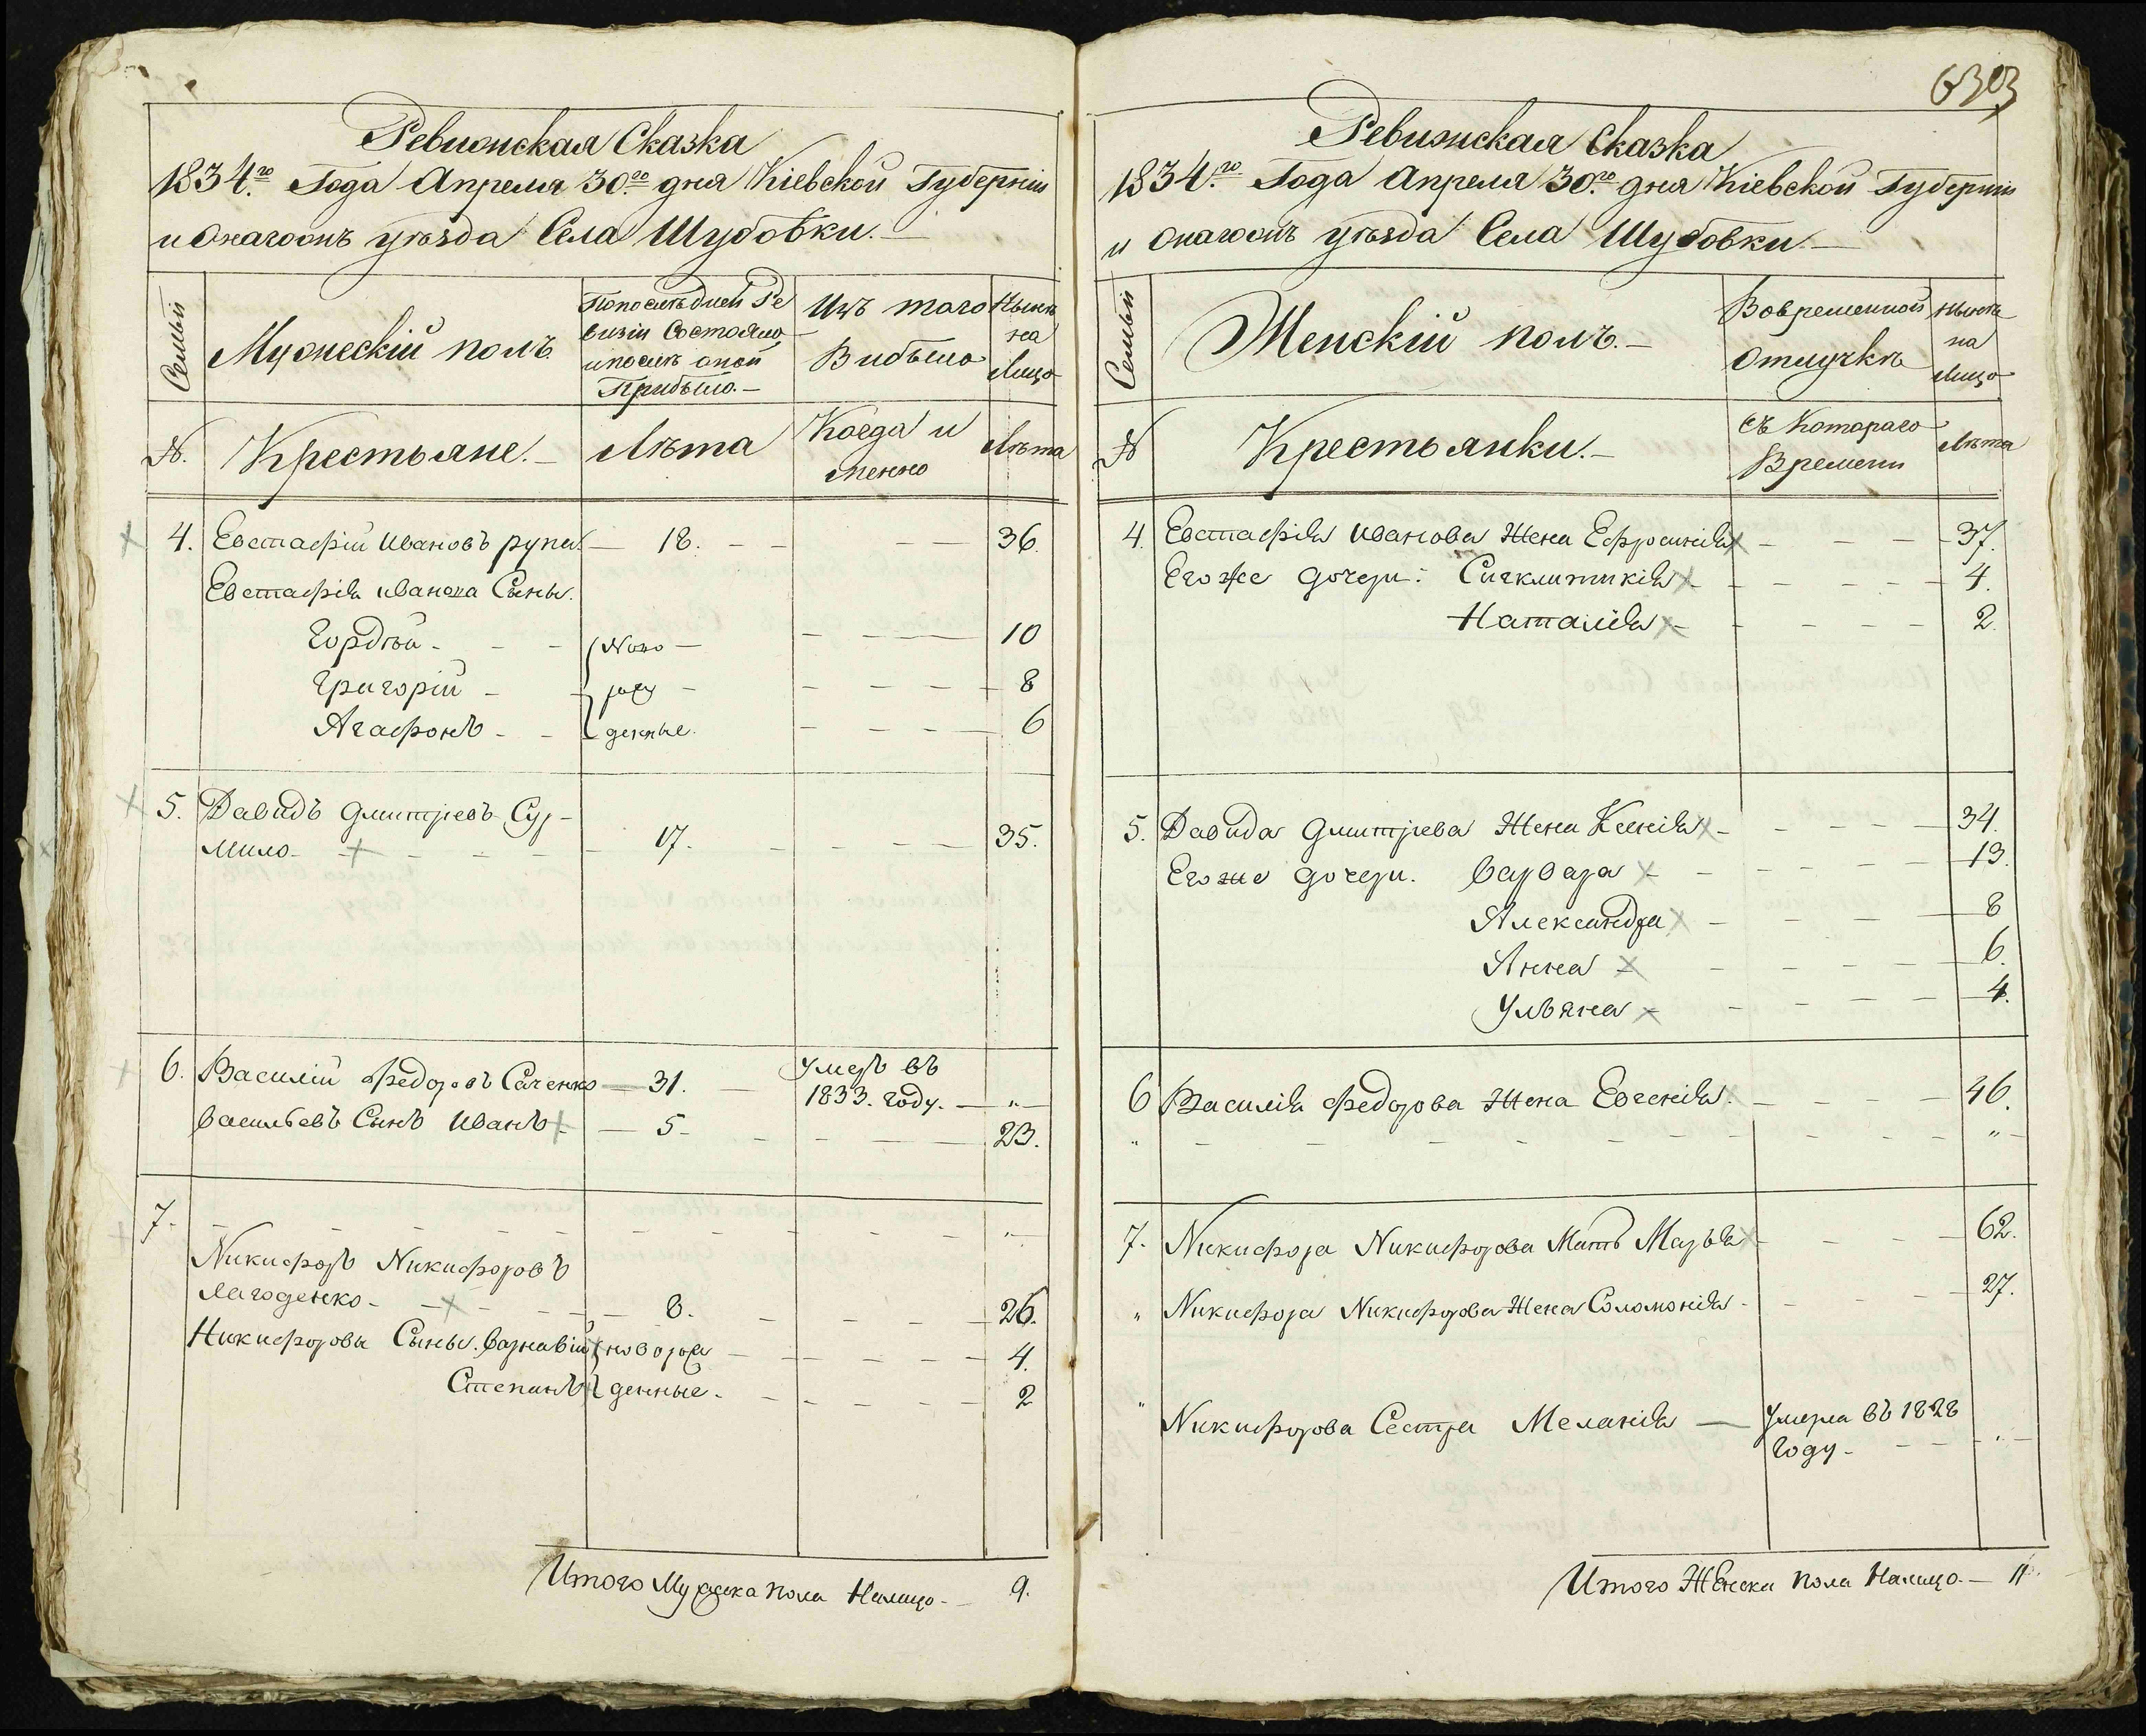 Ревизская Сказка
1834.го Года Апреля 30.го дня Кіевской Губерніи
и онагожъ уѣзда Села Шубовки.
Семьи
Мужескій полъ.
Попослѣдней Ре
визіи Состояло
ипослѣ оной
Прибыло.
Изъ того
Выбыло
Нынѣ
на
Лицо
№.
Крестьяне.
Лѣта
Когда и
менно
Лѣта
4. Евстафій Ивановъ 18. 36.
Евстафія Иванова Сыны.
Гордѣй - Ново 10
Григорій - рож 8
Агафонъ - денные. 6
5. Давидъ Дмитріевъ Сур-
мило 17. 35.
6. Василій Федоровъ Саченко 31. Умеръ въ
1833. году. "
Васильевъ Сынъ Иванъ 5 23.
7. "
Никифоръ Никифоровъ
Лагоденко 8. 26.
Никифорова Сыны. Варнавій новорож 4.
Степанъ денные. 2
Итого Мужеска пола Налицо 9.
6303
Ревизская Сказка
1834.го Года Апреля 30.го дня Кіевской Губерніи
и онагожъ уѣзда Села Шубовки
Семьи
Женскій полъ.
Вовременной
Отлучкѣ
Нынѣ
на
Лицо
№
Крестьянки.
Съ Котораго
Времени
Лѣта
4. Евстафія Иванова Жена Ефросинія 37.
Егоже дочери: Сигклитикія 4.
Наталія 2.
5. Давида Дмитріева Жена Ксенія 34.
Егоже дочери. Варвара 13.
Александра 8
Анна 6.
Ульяна 4.
6 Василія Федорова Жена Евгенія. 46.
" "
7. Никифора Никифорова Мать Марья 62.
" Никифора Никифорова Жена Соломонія 27.
" Никифорова Сестра Меланія Умерла въ 1828
году. "
Итого Женска пола Налицо 11.